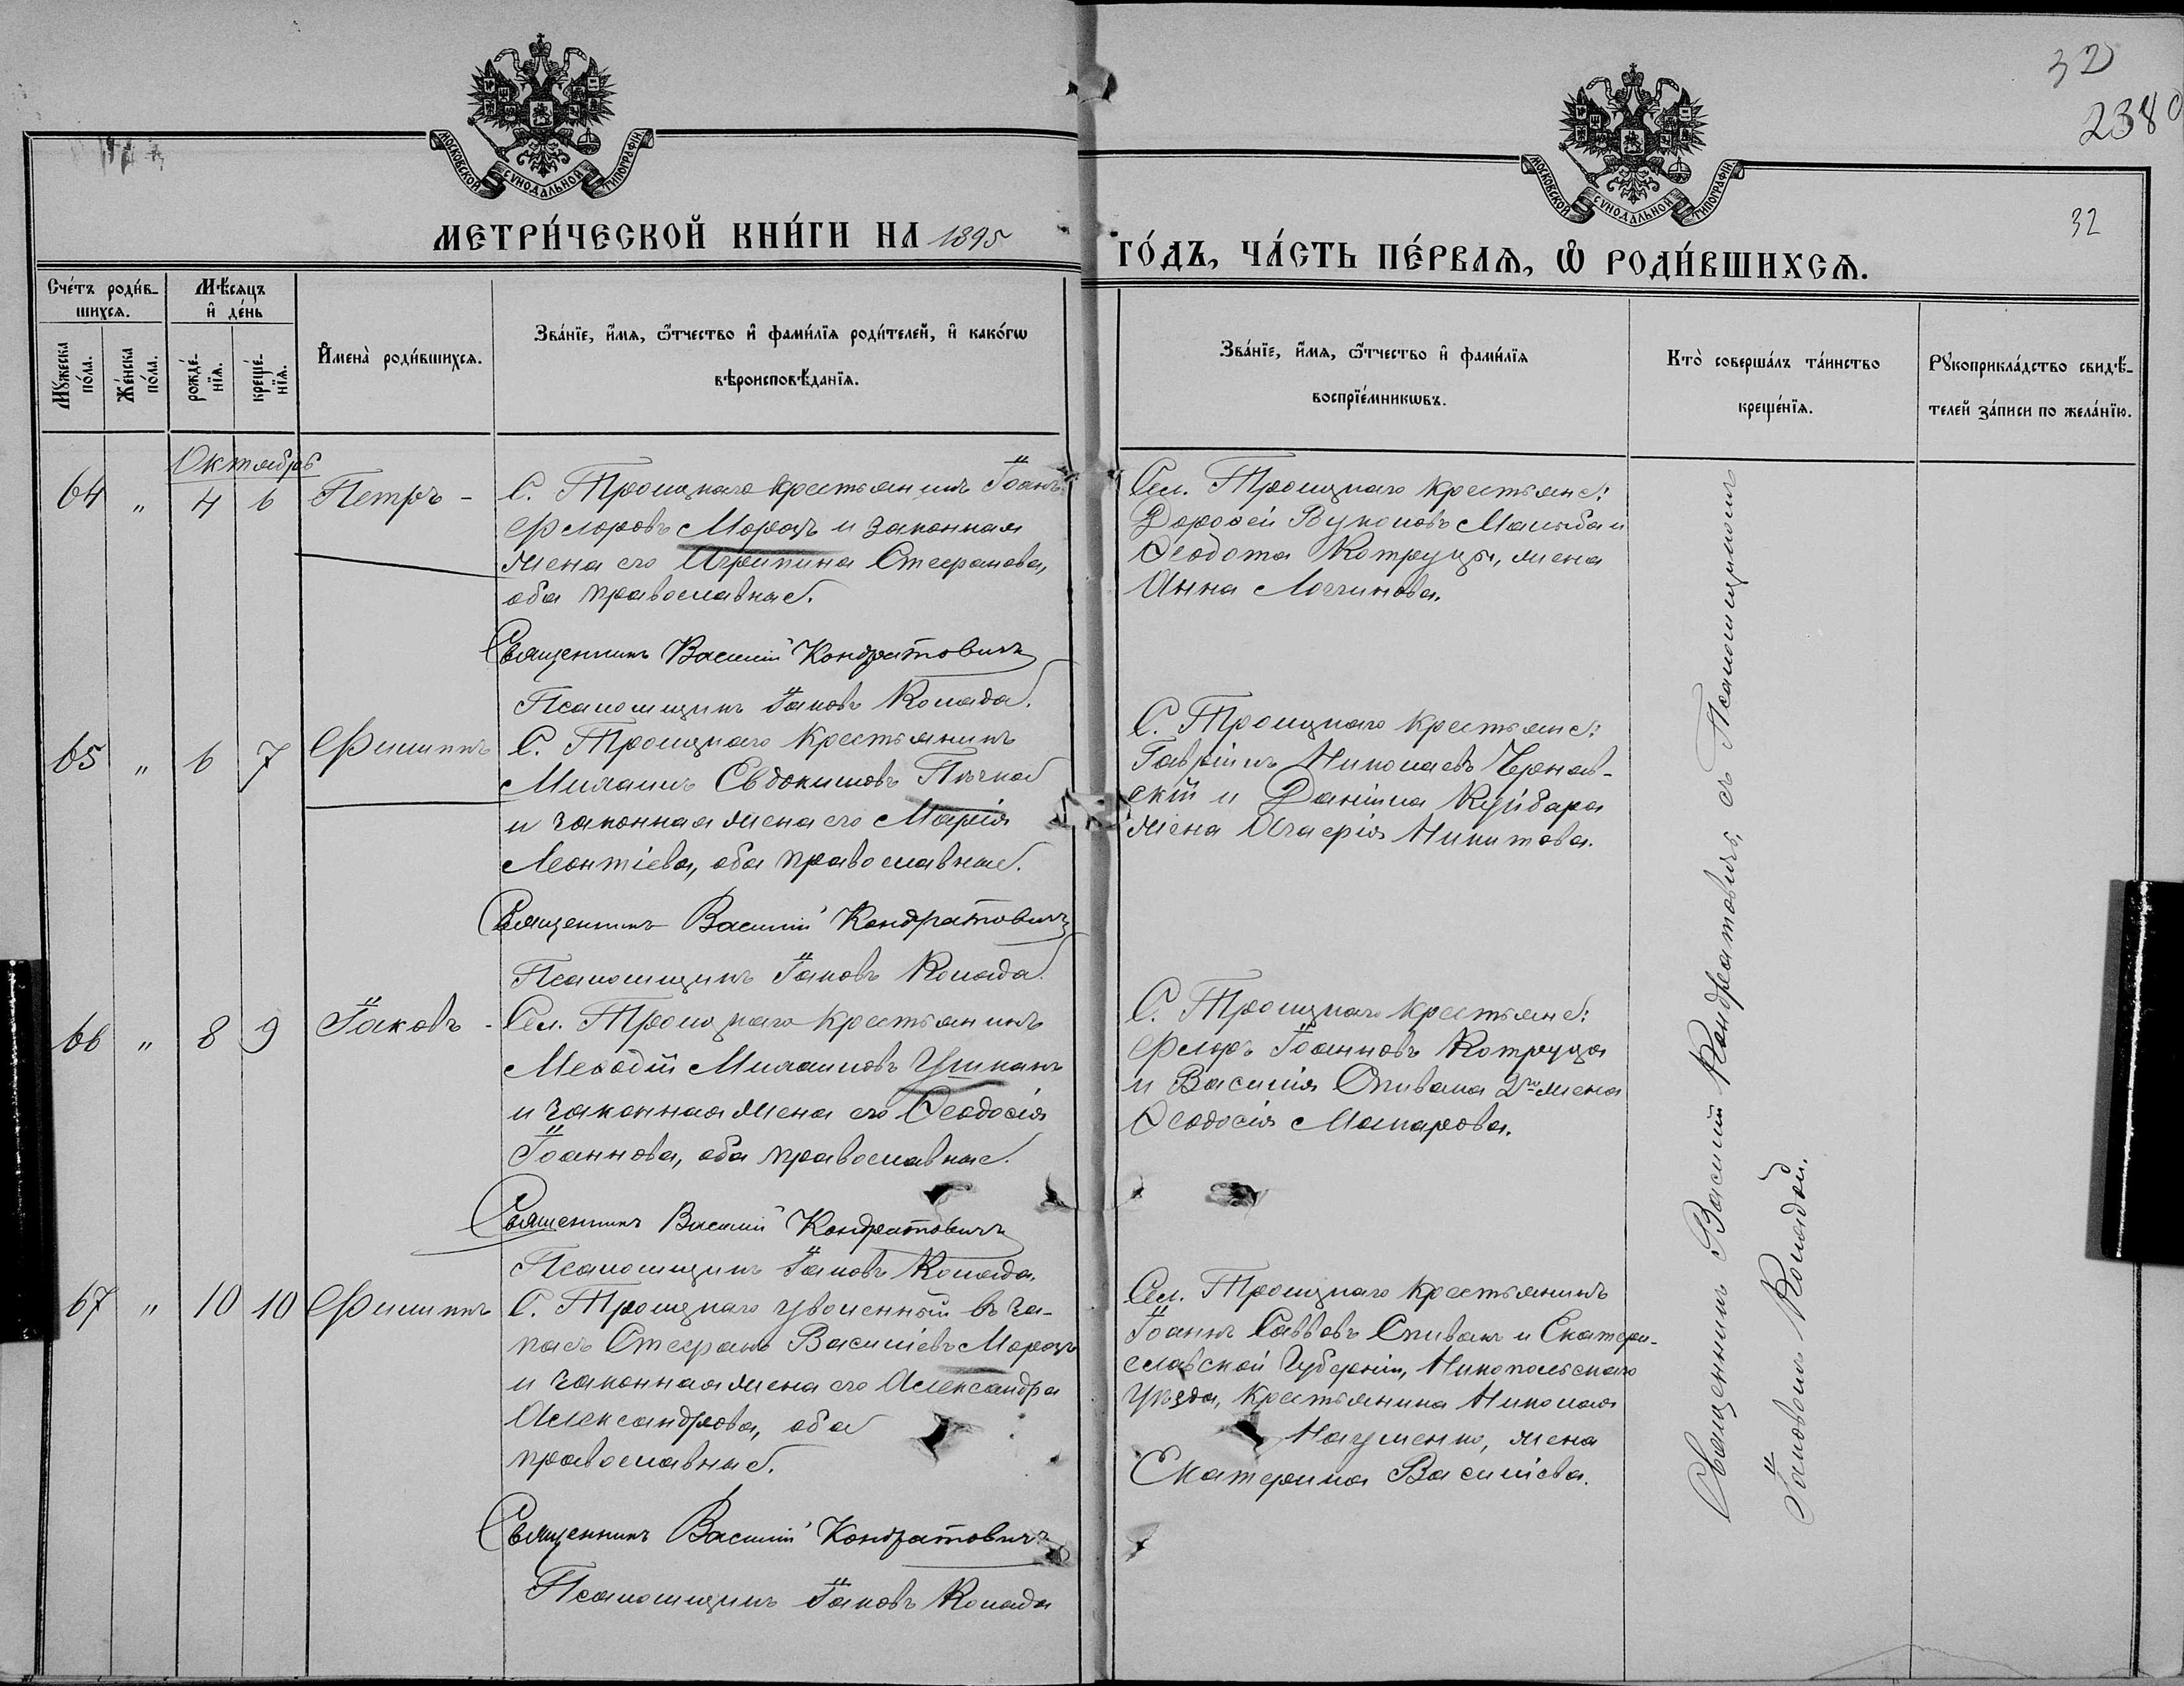 32
2380
32
МОСКОВСКОЙ СѴНОДАЛЬНОЙ ТИПОГРАФІИ
МОСКОВСКОЙ СѴНОДАЛЬНОЙ ТИПОГРАФІИ
МЕТРИ́ЧЕСКОЙ КНИ́ГИ НА 1895
ГО́ДЪ, ЧА́СТЬ ПЕ́РВАѦ, Ѡ҆ РОДИ́ВШИХСѦ.
Сче́тъ роди́в-
шихсѧ.
Мꙋ́жеска по́ла.
Же́нска по́ла.
Мѣ́сѧцъ
и҆ де́нь
рожде́-
нїѧ.
креще́-
нїѧ.
И҆мена̀ роди́вшихсѧ.
Зва́нїе, и҆́мѧ, ѻ҆́тчество и҆ фами́лїѧ роди́телей, и҆ како́гѡ
вѣроисповѣ́данїѧ.
Зва́нїе, и҆́мѧ, ѻ҆́тчество и҆ фами́лїѧ
воспрїе́мникѡвъ.
Кто̀ соверша́лъ та́инство
креще́нїѧ.
Рꙋкоприкла́дство свидѣ́-
телей за́писи по жела́нїю.
Октябрь
64 " 4 6 Петръ -
С. Троицкаго крестьянинъ Іоанъ
Флоровъ Морозъ и законная
жена его Агрипина Стефанова,
оба православные.
Священникъ Василій Кондратовичъ
Псаломщикъ Іаковъ Колада.
Сел. Троицкаго крестьяне:
Дороѳей Вуколовъ и
Ѳеодота Котруца, жена
Анна Логинова.
65 " 6 7 Филиппъ
С. Троицкаго крестьянинъ
Михаилъ Евдокимовъ
и законная жена его Марія
Леонтіева, оба православные.
Священникъ Василій Кондратовичъ
Псаломщикъ Іаковъ Колада.
С. Троицкаго крестьяне:
Гавріилъ Николаевъ Чернав-
скій и Даніила Куйбара
жена Николаева Никитова.
66 " 8 9 Іаковъ -
Сел. Троицкаго крестьянинъ
Меѳодій Михаиловъ
и законная жена его Ѳеодосія
Іоаннова, оба православные.
Священникъ Василій Кондратовичъ
Псаломщикъ Іаковъ Колада.
С. Троицкаго крестьяне:
Флоръ Іоанновъ Котруца
и Василія Спивака 2го жена
Ѳеодосія Макарова.
67 " 10 10 Филиппъ
С. Троицкаго уволенный въ за-
пасъ Стефанъ Василіевъ Морозъ
и законная жена его Александра
Александрова, оба
православные.
Священникъ Василій Кондратовичъ
Псаломщикъ Іаковъ Колада
Сел. Троицкаго крестьянинъ
Іоаннъ Саввовъ Спивакъ и Екатери-
славской Губерніи, Никопольскаго
уѣзда, крестьянина Николая
Науменко, жена
Екатерина Василіева.
Священникъ Василій Кондратовичъ, съ Псаломщикомъ
Іаковомъ Коладой.